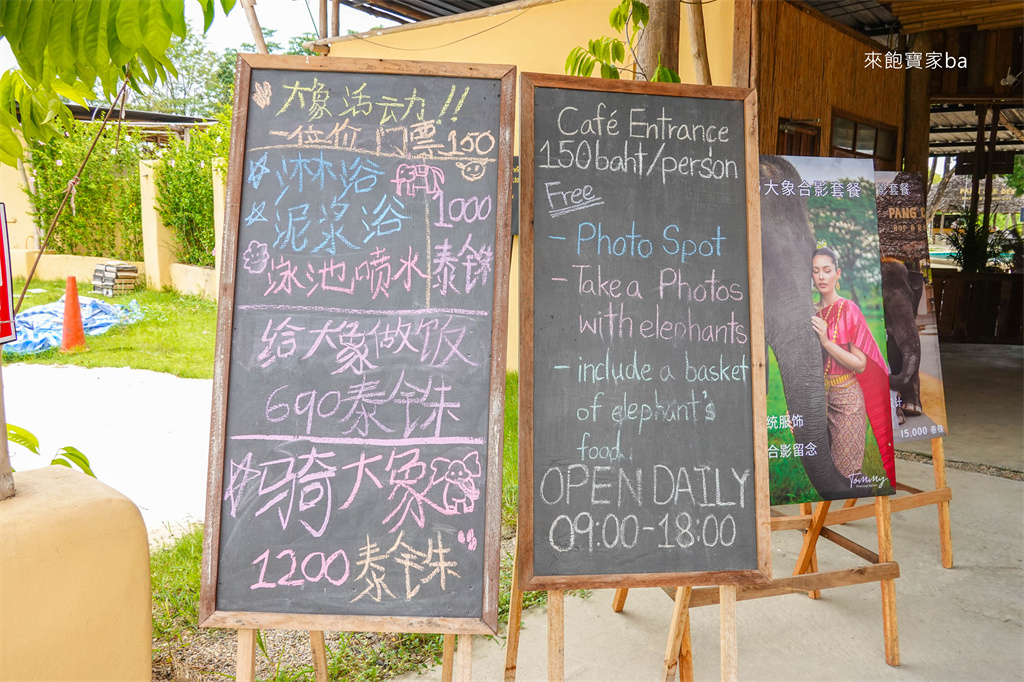 來飽寶家ba
大象活动力!!
一位价 门票150
☆淋浴
☆泥浆浴
1000
泳池喷水 泰铢
给大象做饭
690泰铢
骑大象
1200泰铢
Café Entrance
150baht/person
Free
- Photo Spot
- Take a Photos
with elephants
- include a basket
of elephant's
food
OPEN DAILY
09:00-18:00
大象合影套餐
统服饰
合影留念
Tommy
影套餐
PANG
15,000 泰铢